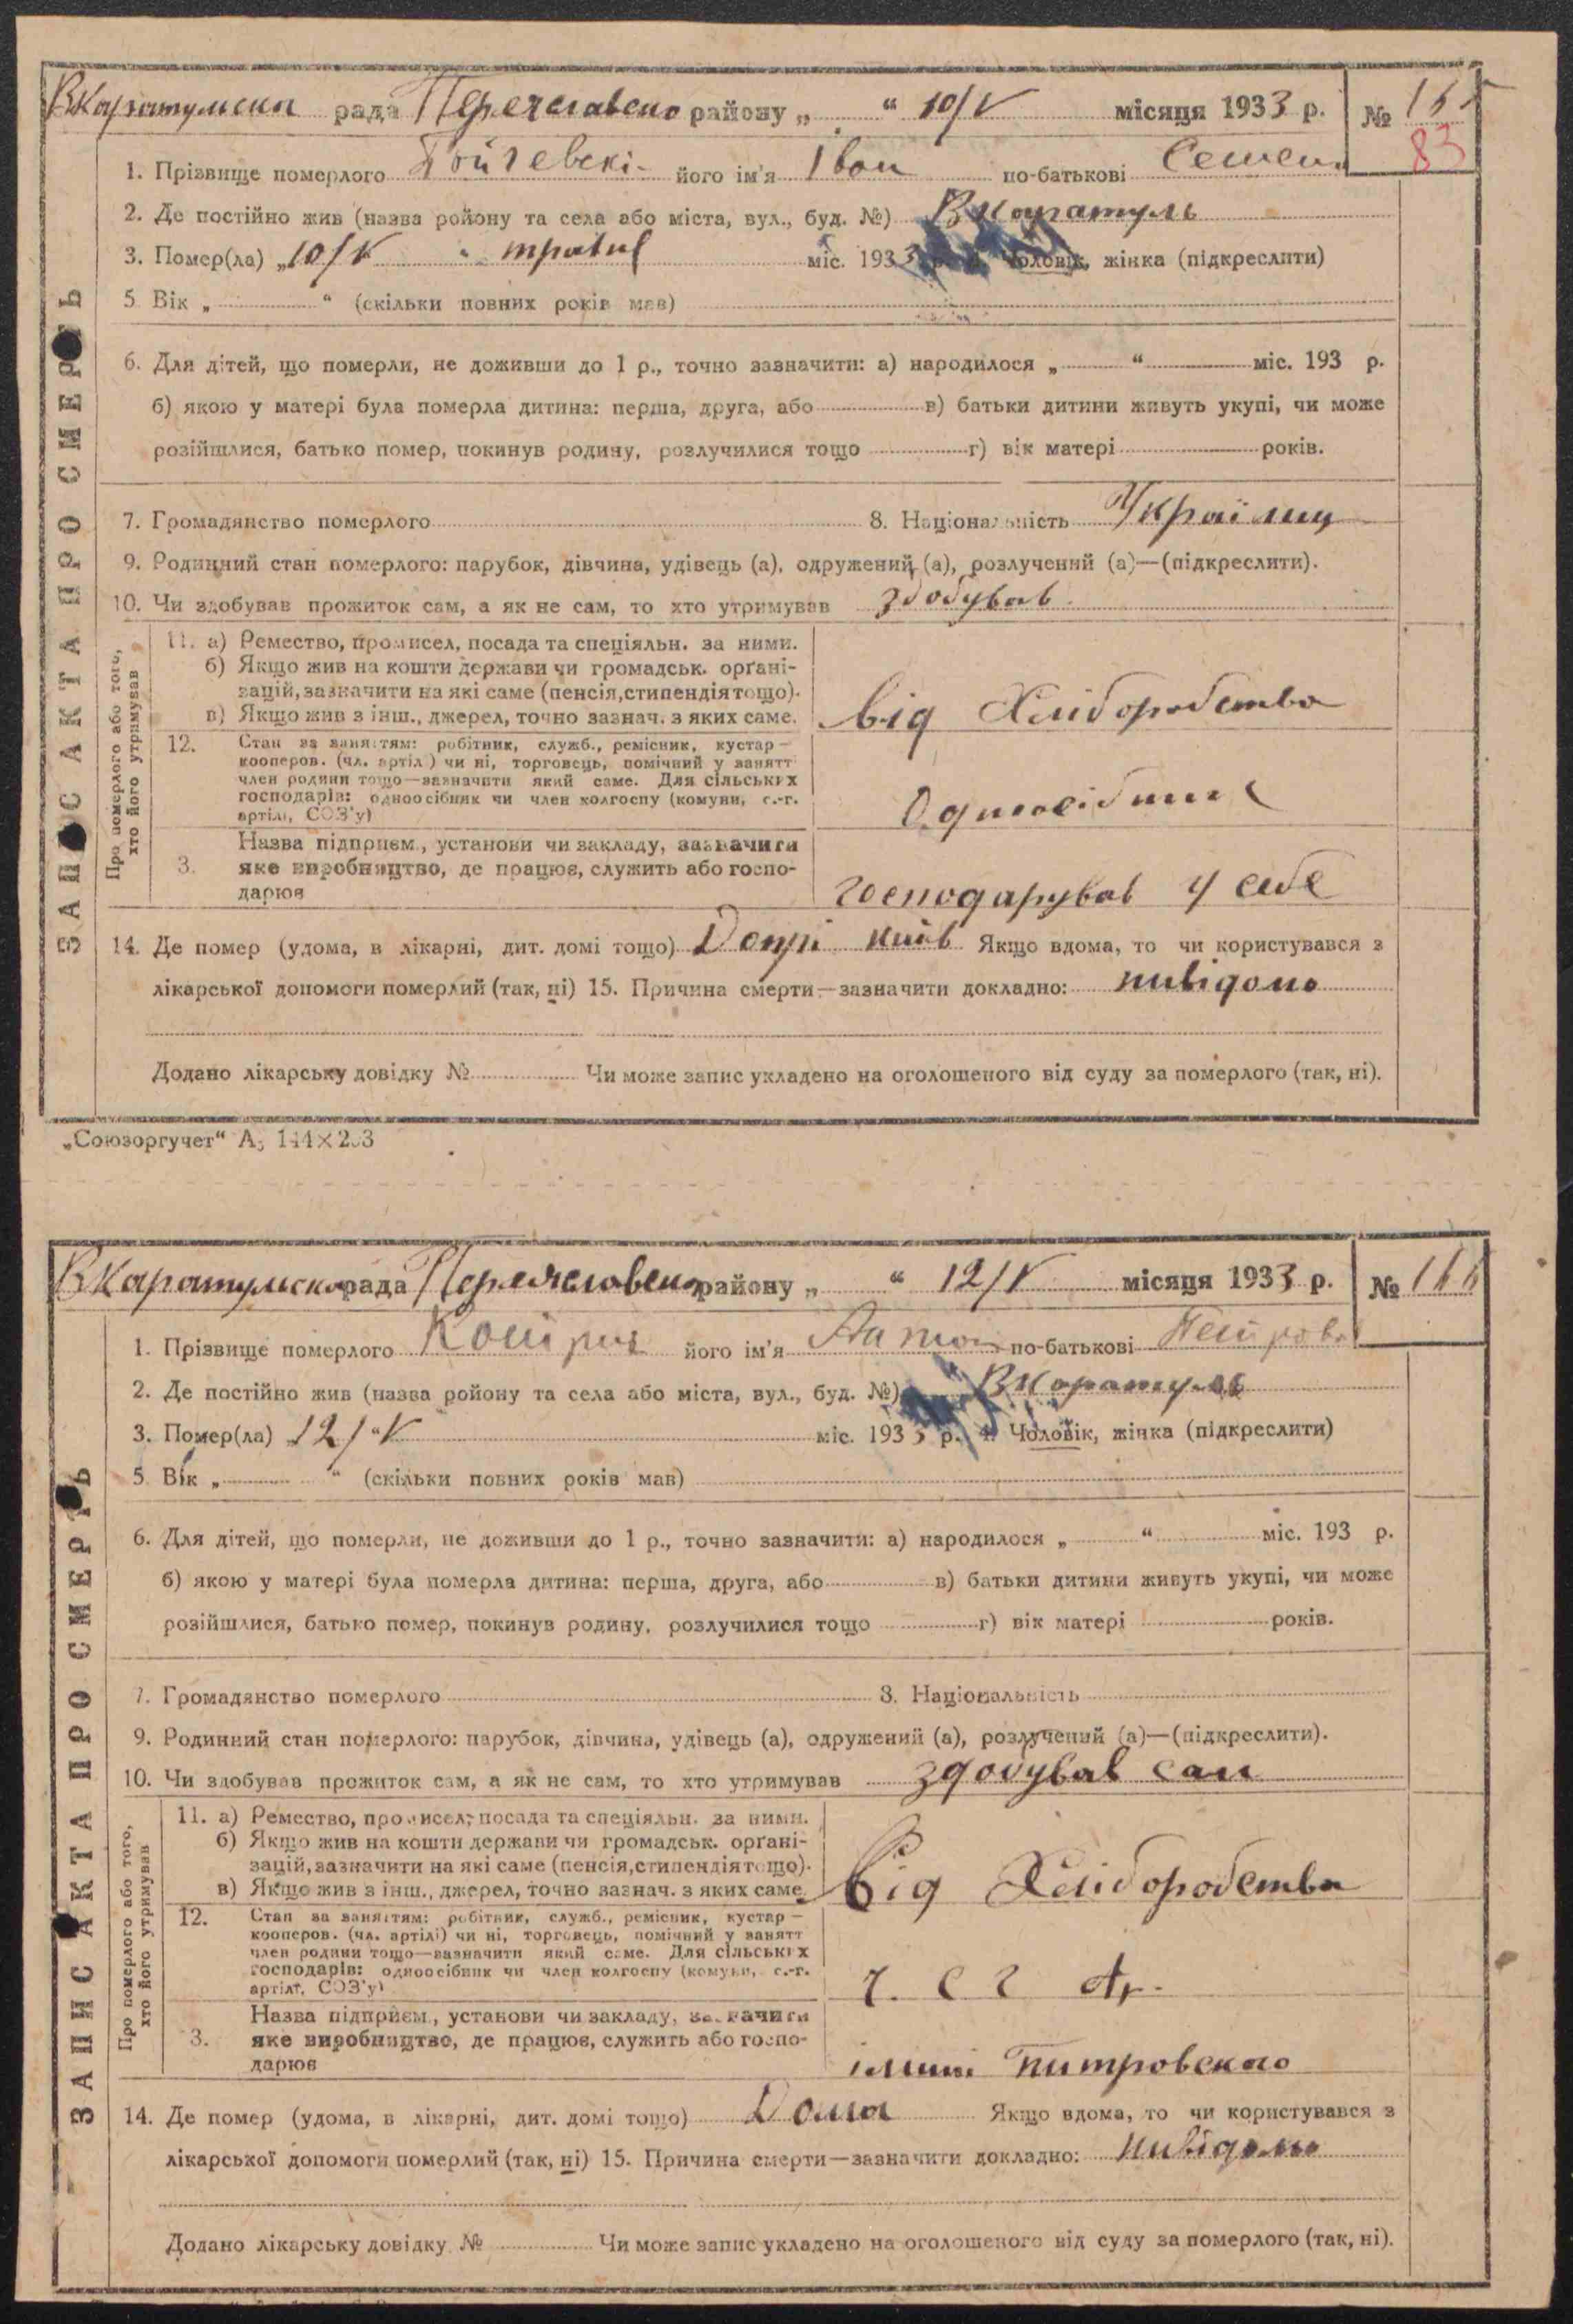 ВКаратулска рада Переяславсько району „ “ 10/V місяця 1933 р. № 165
83
1. Прізвище померлого його ім'я Іван по-батькові Семен
2. Де постійно жив (назва ройону та села або міста, вул., буд. №) ВКаратуль
3. Помер(ла) „10/V “ травня міс. 1933 Чоловік, жінка (підкреслити)
5 Вік „ “ (скільки повних років мав)
6. Для дітей, що померли, не доживши до 1 р., точно зазначити: а) народилося „ “ міс. 193 р.
б) якою у матері була померла дитина: перша, друга, або в) батьки дитини живуть укупі, чи може
розійшлися, батько помер, покинув родину, розлучилися тощо г) вік матері років.
7. Громадянство померлого 8. Національність Україниц
9. Родинний стан померлого: парубок, дівчина, удівець (а), одружений (а), розлучений (а)—(підкреслити).
10. Чи здобував прожиток сам, а як не сам, то хто утримував здобував
ЗАПИС АКТА ПРО СМЕРТЬ
Про померлого або того, хто його утримував
11. а) Ремество, промисел, посада та спеціяльн. за ними.
б) Якщо жив на кошти держави чи громадськ. орґані-
зацій, зазначити на які саме (пенсія, стипендія тощо).
в) Якщо жив з інш., джерел, точно зазнач. з яких саме.
від Хліборобства
12. Стан за заняттям: робітник, служб., ремісник, кустар—
кооперов. (чл. артіл) чи ні, торговець, помічний у занятт
член родини тощо—зазначити який саме. Для сільських
господарів: одноосібник чи член колгоспу (комуни, с.-г.
артілі, СОЗ'у)
Одноосібник
3. Назва підприєм., установи чи закладу, зазначити
яке виробництво, де працює, служить або госпо-
дарює
господарував у себе
14. Де помер (удома, в лікарні, дит. домі тощо) Допрі Київ Якщо вдома, то чи користувався з
лікарської допомоги померлий (так, ні) 15. Причина смерти—зазначити докладно: нивідомо
Додано лікарську довідку № Чи може запис укладено на оголошеного від суду за померлого (так, ні).
„Союзоргучет“ А5 144×203
ВКаратулска рада Переяславсько району „ “ 12/V місяця 1933 р. № 166
1. Прізвище померлого його ім'я Антон по-батькові Петров
2. Де постійно жив (назва ройону та села або міста, вул., буд. №) ВКаратуль
3. Помер(ла) „12/V “ міс. 1933 р. 4. Чоловік, жінка (підкреслити)
5. Вік „ “ (скільки повних років мав)
6. Для дітей, що померли, не доживши до 1 р., точно зазначити: а) народилося „ “ міс. 193 р.
б) якою у матері була померла дитина: перша, друга, або в) батьки дитини живуть укупі, чи може
розійшлися, батько помер, покинув родину, розлучилися тощо г) вік матері років.
7. Громадянство померлого 8. Національність
9. Родинний стан померлого: парубок, дівчина, удівець (а), одружений (а), розлучений (а)—(підкреслити).
10. Чи здобував прожиток сам, а як не сам, то хто утримував здобував сам
ЗАПИС АКТА ПРО СМЕРТЬ
Про померлого або того, хто його утримував
11. а) Ремество, промисел, посада та спеціяльн. за ними.
б) Якщо жив на кошти держави чи громадськ. орґані-
зацій, зазначити на які саме (пенсія, стипендія тощо).
в) Якщо жив з інш., джерел, точно зазнач. з яких саме.
Від Хліборобства
12. Стан за заняттям: робітник, служб., ремісник, кустар—
кооперов. (чл. артілі) чи ні, торговець, помічний у занятт
член родини тощо—зазначити який саме. Для сільських
господарів: одноосібник чи член колгоспу (комуни, с.-г.
артілі, СОЗ'у)
ч. С Г Ар.
3. Назва підприєм., установи чи закладу, зазначити
яке виробництво, де працює, служить або госпо-
дарює
імині Питровского
14. Де помер (удома, в лікарні, дит. домі тощо) Дома Якщо вдома, то чи користувався з
лікарської допомоги померлий (так, ні) 15. Причина смерти—зазначити докладно: нивідомо
Додано лікарську довідку № Чи може запис укладено на оголошеного від суду за померлого (так, ні).